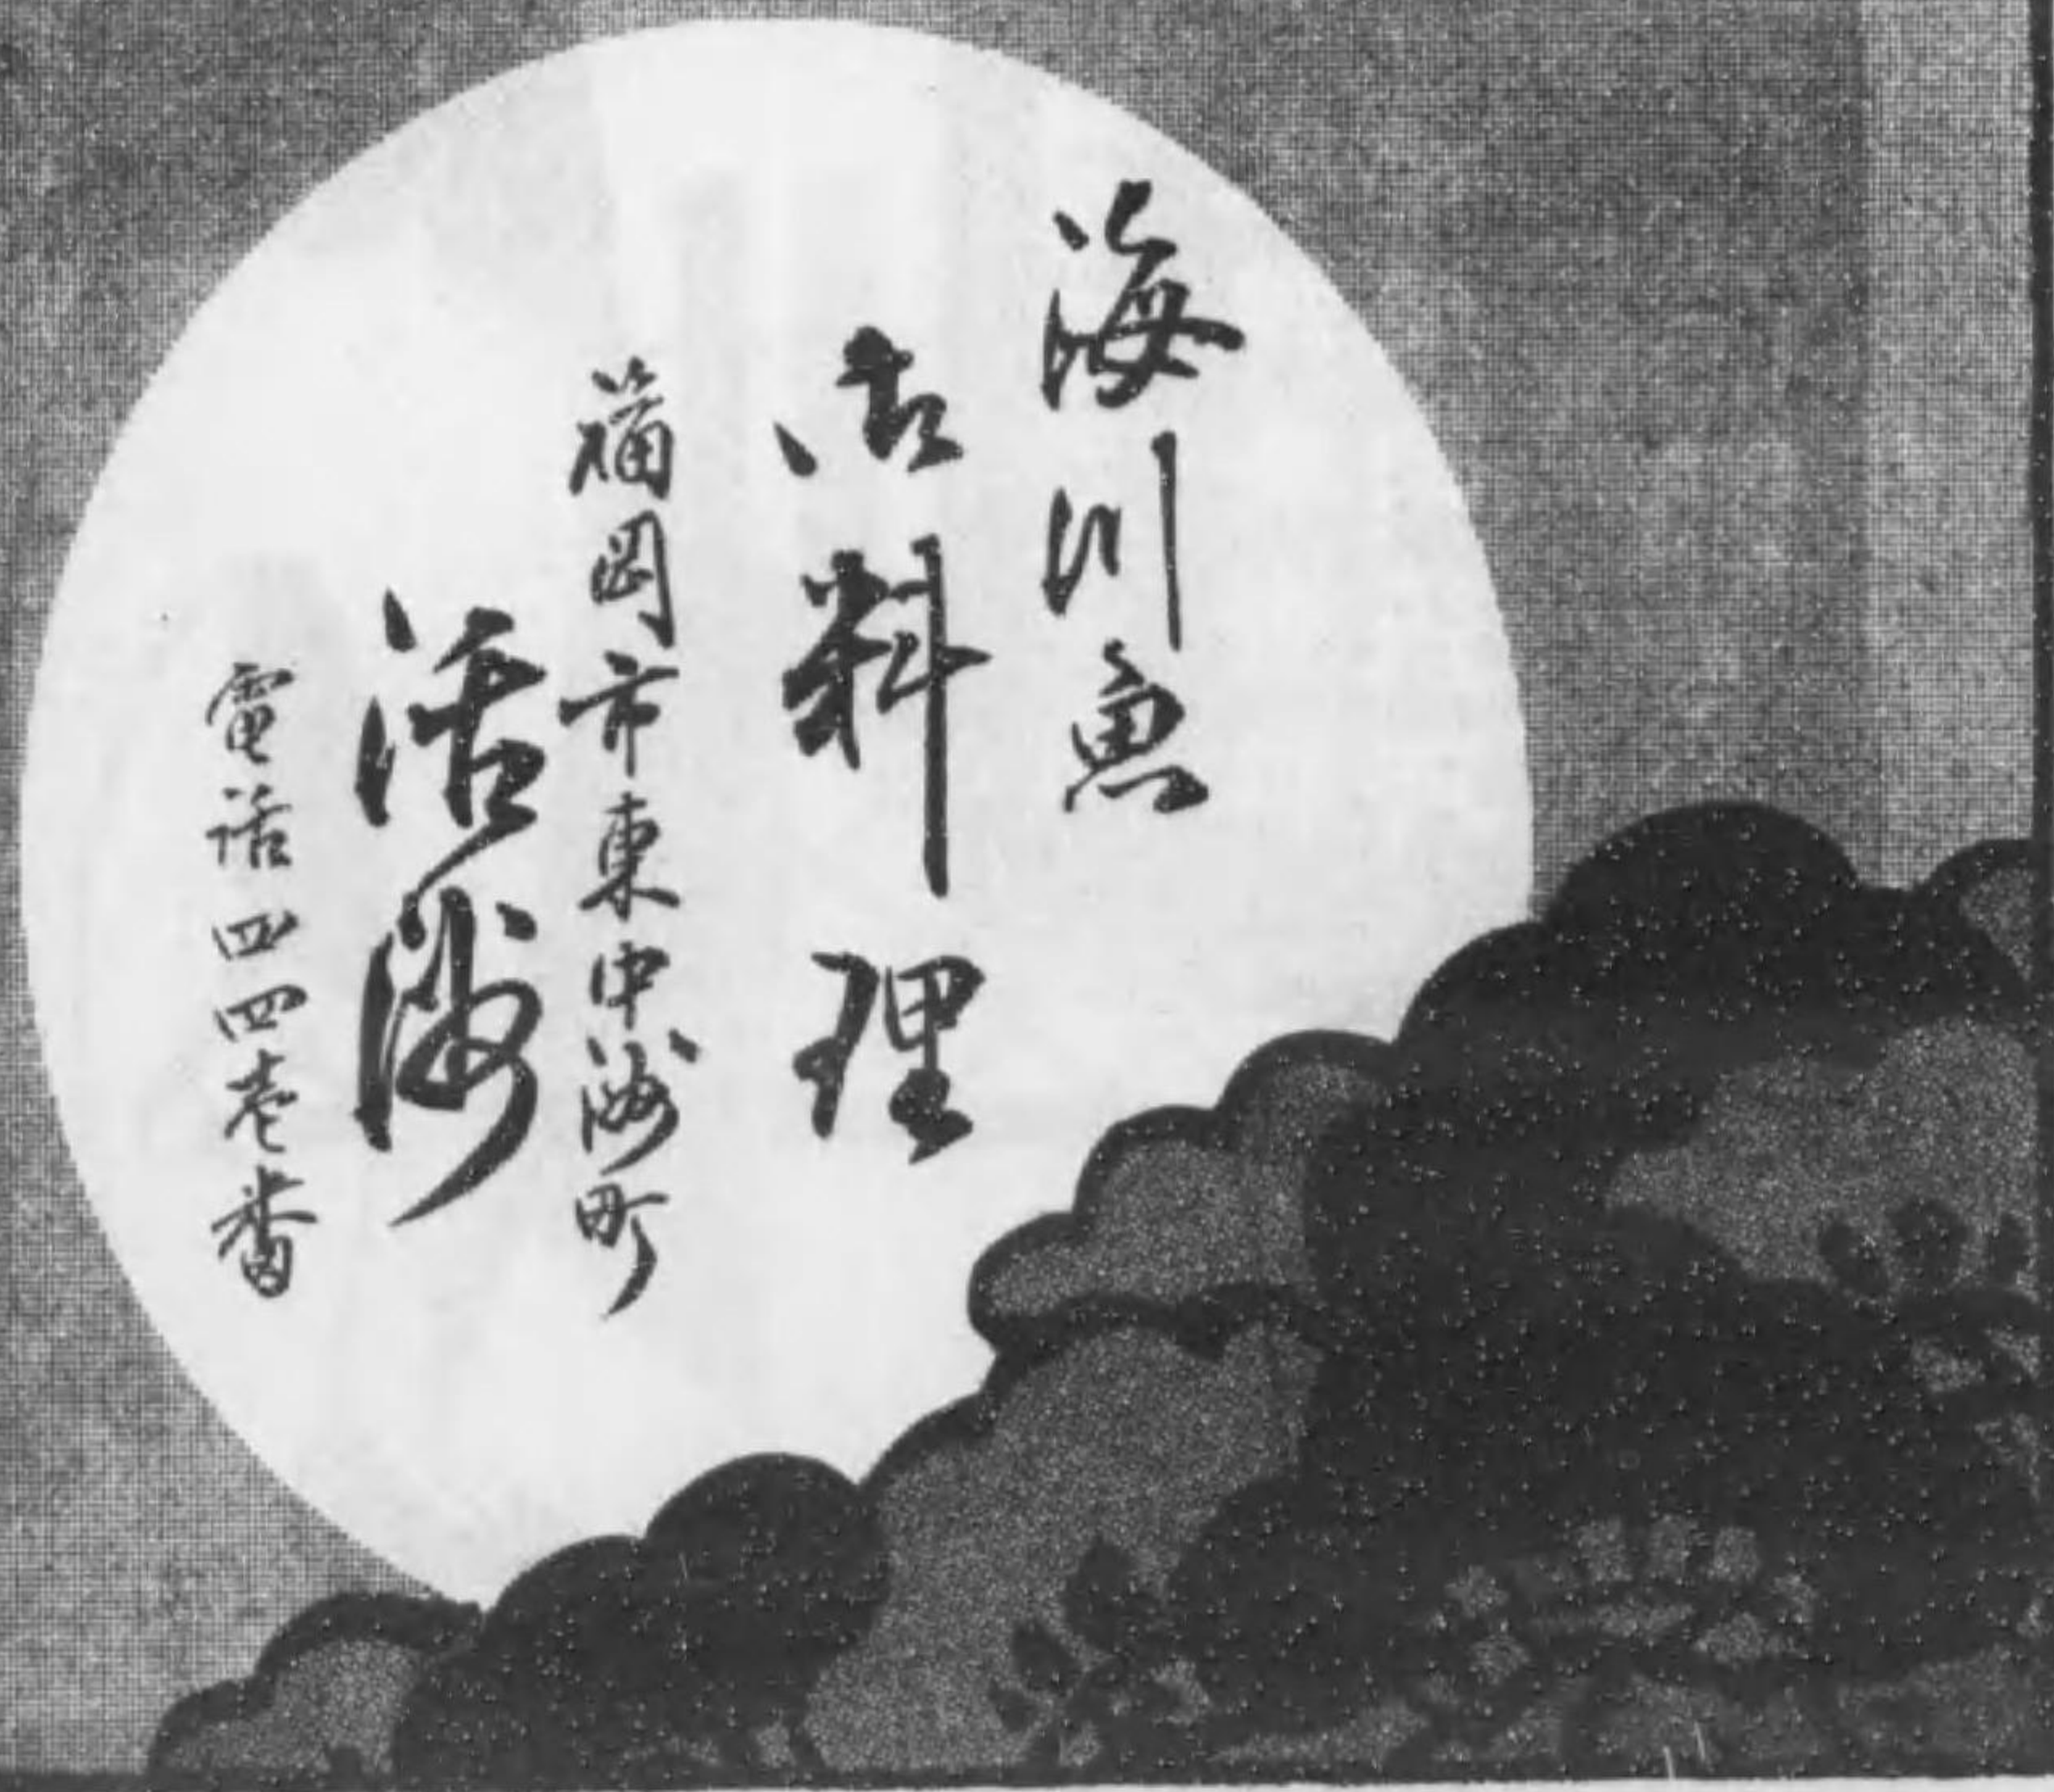 海川魚
御料理
福岡市東中洲町
活洲
電話四四壱番